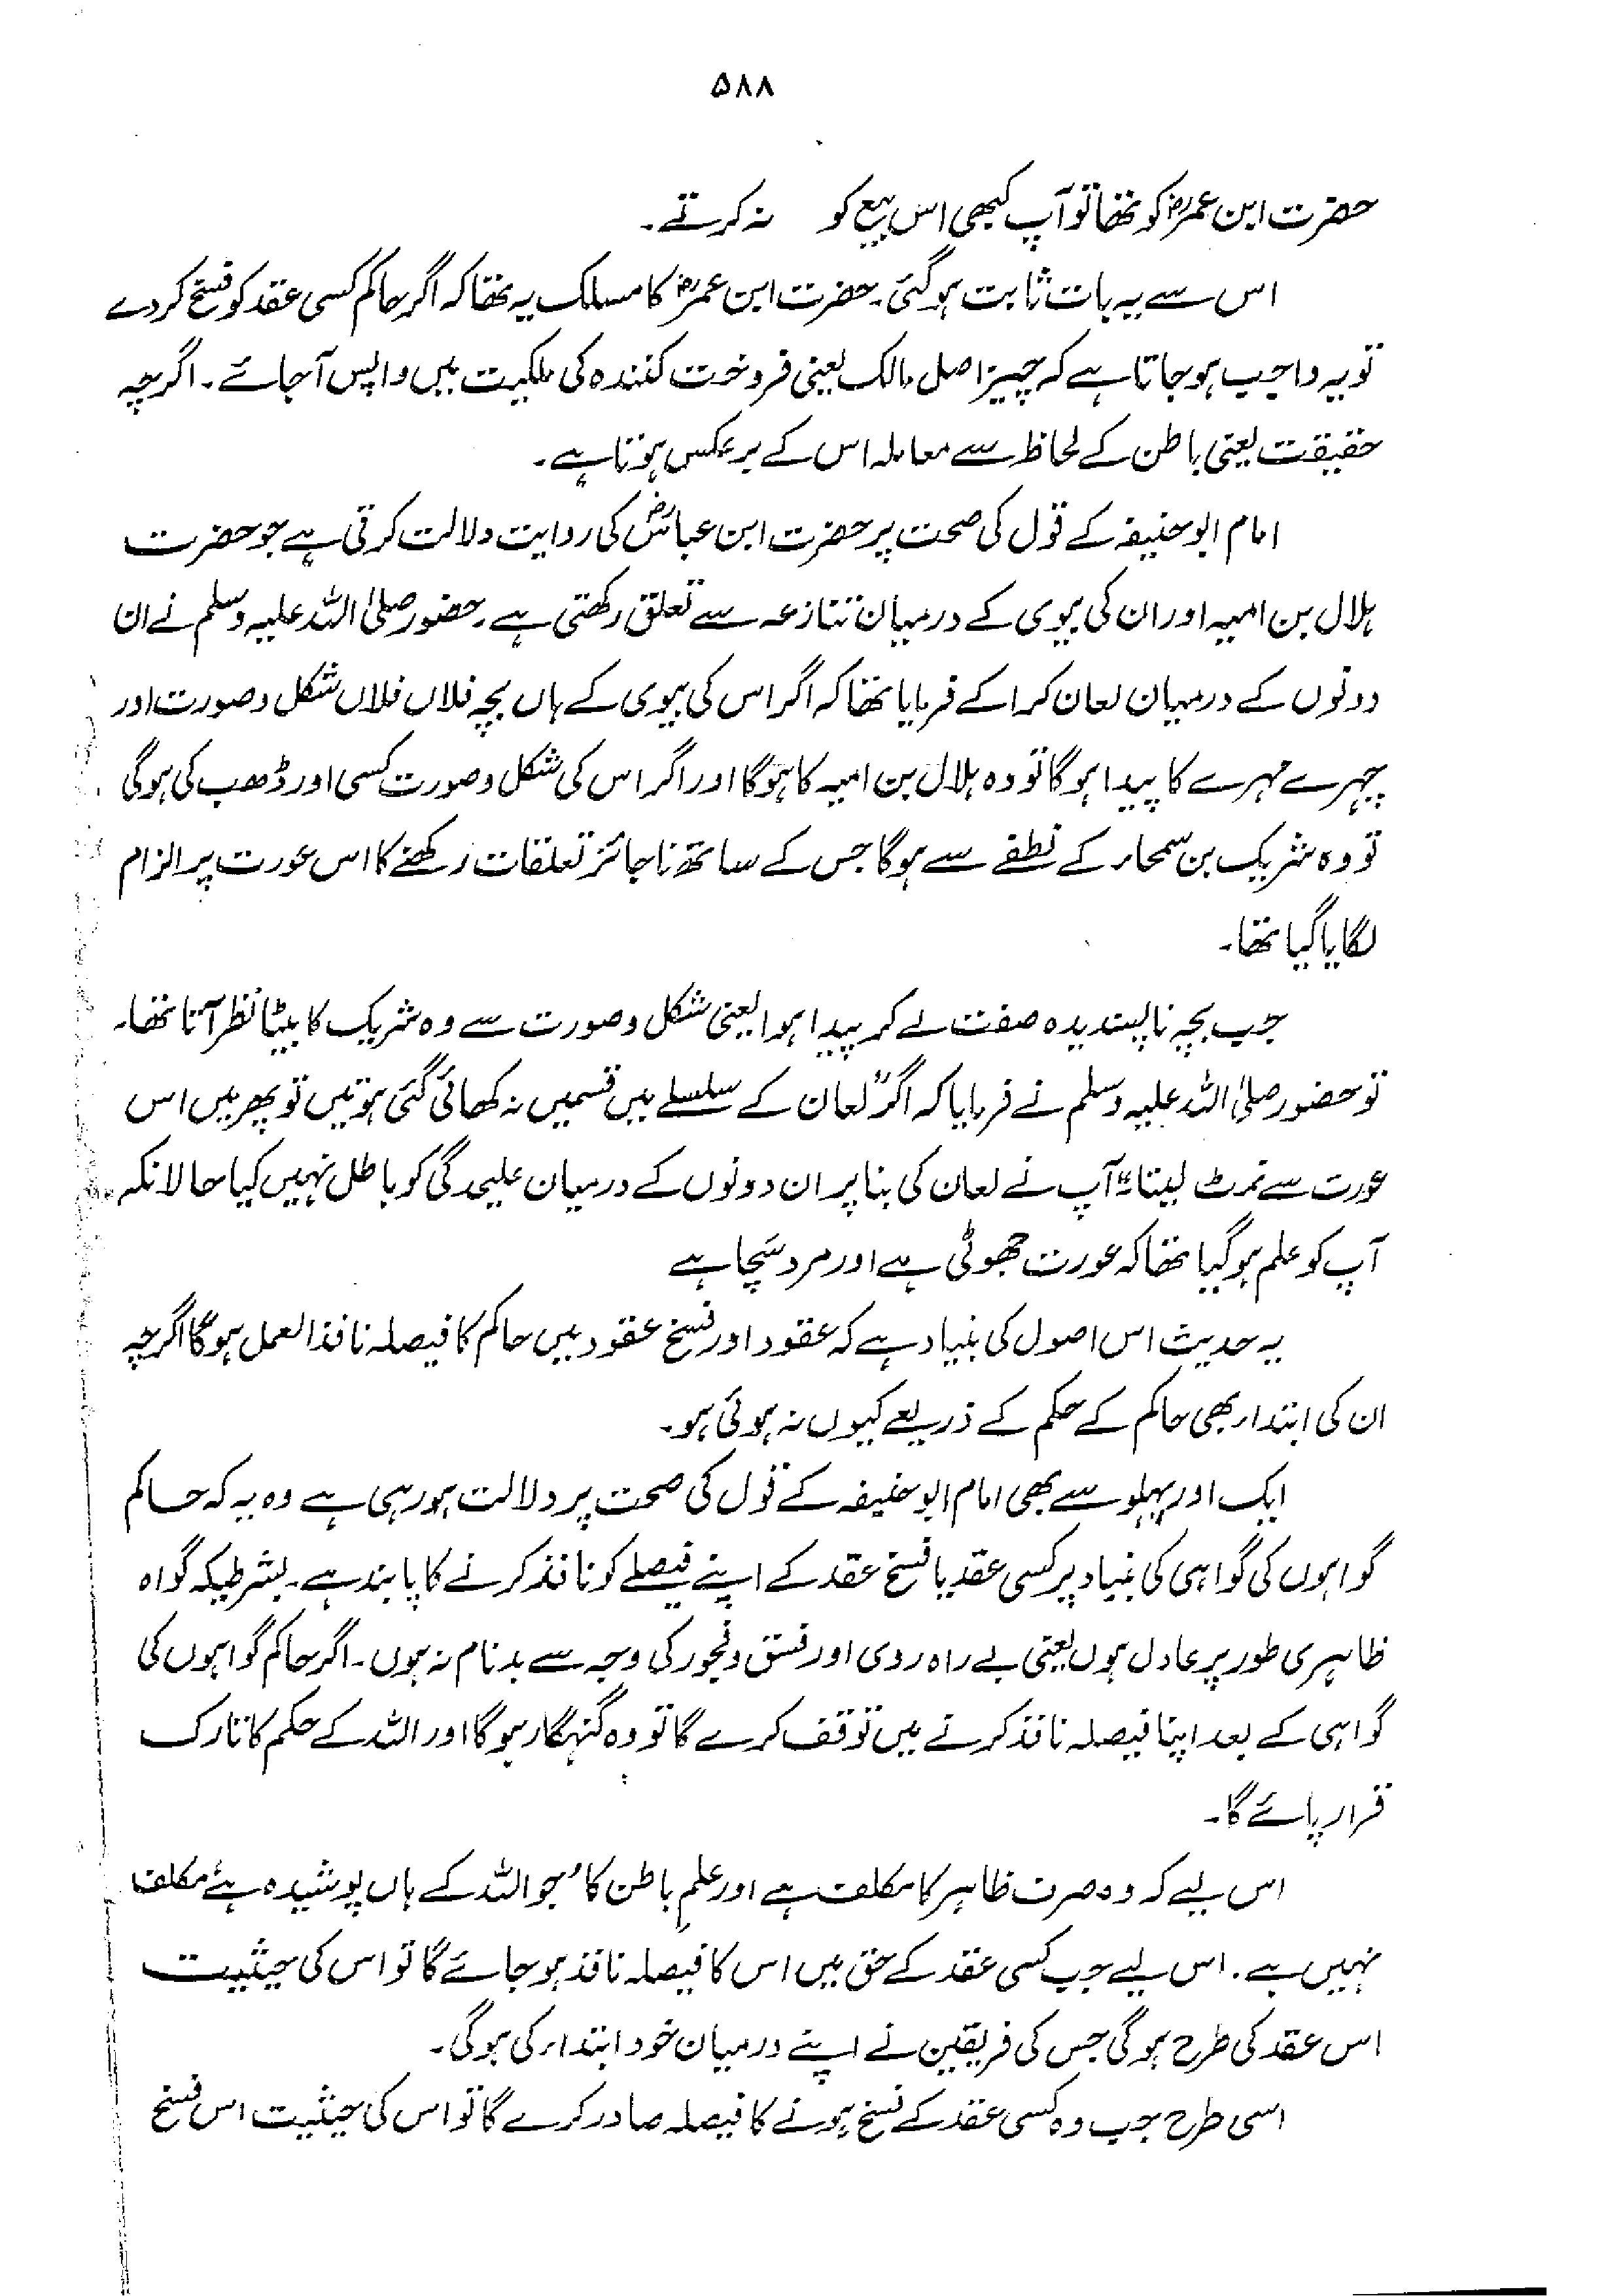 ۵۸۸
حضرت ابن عمرؓ کو تھا تو آپ کبھی اس بیع کو نہ کرتے۔
اس سے یہ بات ثابت ہوگئی۔ حضرت ابن عمرؓ کا مسلک یہ تھا کہ اگر حاکم کسی عقد کو فسخ کردے
تو یہ واجب ہو جاتا ہے کہ چیز اصل مالک یعنی فروخت کنندہ کی ملکیت میں واپس آجائے۔ اگرچہ
حقیقت یعنی باطن کے لحاظ سے معاملہ اس کے برعکس ہوتا ہے۔
امام ابو حنیفہ کے قول کی صحت پر حضرت ابن عباسؓ کی روایت دلالت کرتی ہے جو حضرت
ہلال بن امیہ اور ان کی بیوی کے درمیان تنازعہ سے تعلق رکھتی ہے۔ حضور صلی اللہ علیہ وسلم نے ان
دونوں کے درمیان لعان کرا کے فرمایا تھا کہ اگر اس کی بیوی کے ہاں بچہ فلاں فلاں شکل و صورت اور
چہرے مہرے کا پیدا ہوگا تو وہ ہلال بن امیہ کا ہوگا اور اگر اس کی شکل و صورت کسی اور ڈھب کی ہوگی
تو وہ شریک بن سمحاء کے نطفے سے ہوگا جس کے ساتھ ناجائز تعلقات رکھنے کا اس عورت پر الزام
لگایا گیا تھا۔
جب بچہ ناپسندیدہ صفت لے کر پیدا ہوا یعنی شکل و صورت سے وہ شریک کا بیٹا نظر آتا تھا۔
تو حضور صلی اللہ علیہ وسلم نے فرمایا کہ اگر "لعان کے سلسلے میں قسمیں نہ کھائی گئی ہوتیں تو پھر میں اس
عورت سے نمٹ لیتا۔" آپ نے لعان کی بنا پر ان دونوں کے درمیان علیحدگی کو باطل نہیں کیا حالانکہ
آپ کو علم ہوگیا تھا کہ عورت جھوٹی ہے اور مرد سچا ہے
یہ حدیث اس اصول کی بنیاد ہے کہ عقود اور فسخ عقود میں حاکم کا فیصلہ نافذ العمل ہوگا اگرچہ
ان کی ابتداء بھی حاکم کے حکم کے ذریعے کیوں نہ ہوئی ہو۔
ایک اور پہلو سے بھی امام ابو حنیفہ کے قول کی صحت پر دلالت ہو رہی ہے وہ یہ کہ حاکم
گواہوں کی گواہی کی بنیاد پر کسی عقد یا فسخ عقد کے اپنے فیصلے کو نافذ کرنے کا پابند ہے۔ بشرطیکہ گواہ
ظاہری طور پر عادل ہوں یعنی بے راہ روی اور فسق و فجور کی وجہ سے بدنام نہ ہوں۔ اگر حاکم گواہوں کی
گواہی کے بعد اپنا فیصلہ نافذ کرنے میں توقف کرے گا تو وہ گنہگار ہوگا اور اللہ کے حکم کا تارک
قرار پائے گا۔
اس لیے کہ وہ صرف ظاہر کا مکلف ہے اور علمِ باطن کا، جو اللہ کے ہاں پوشیدہ ہے، مکلف
نہیں ہے۔ اس لیے جب کسی عقد کے حق میں اس کا فیصلہ نافذ ہو جائے گا تو اس کی حیثیت
اس عقد کی طرح ہوگی جس کی فریقین نے اپنے درمیان خود ابتداء کی ہوگی۔
اسی طرح جب وہ کسی عقد کے فسخ ہونے کا فیصلہ صادر کرے گا تو اس کی حیثیت اس فسخ